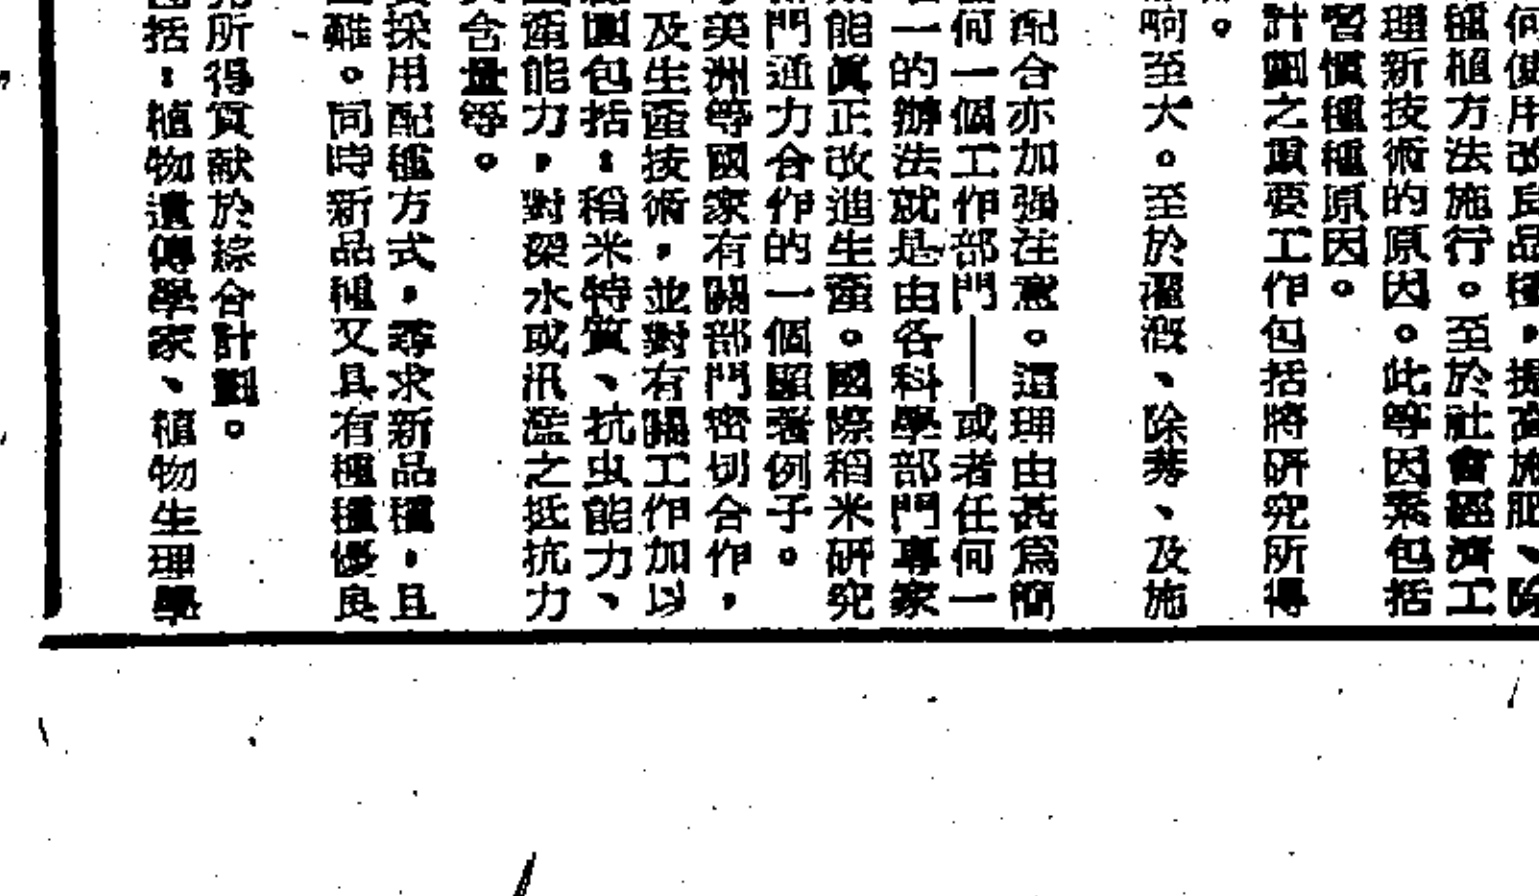 何使用改良品種，提高施肥、除
種植方法施行。至於社會經濟工
理新技術的原因。此等因素包括
習慣種種原因。
計劃之重要工作包括將研究所得
。
啊至大。至於灌溉、除莠、及施
配合亦加强注意。這理由甚爲簡
何一個工作部門——或者任何一
一的辦法就是由各科學部門專家
能眞正改進生產。國際稻米研究
門通力合作的一個顯著例子。
美洲等國家有關部門密切合作，
及生產技術，並對有關工作加以
團包括：稻米特質、抗虫能力、
產能力，對深水或汛濫之抵抗力
含量等。
採用配種方式，尋求新品種，且
難。同時新品種又具有種種優良
所得質献於綜合計劃。
括：植物遺傳學家、植物生理學